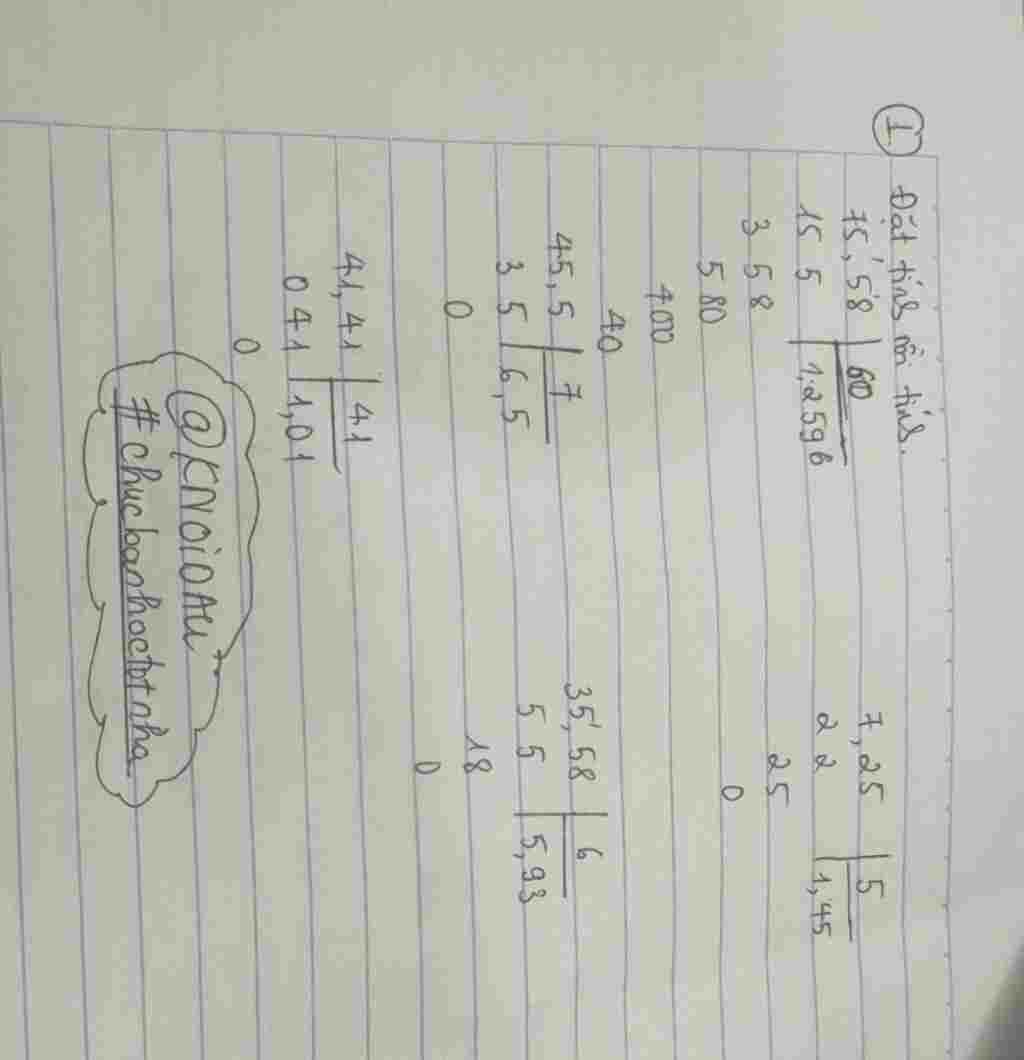 ① Đặt tính rồi tính.
75,58 | 60
15 5 | 1,2596
3 58
580
400
40
7,25 | 5
2 2 | 1,45
25
0
45,5 | 7
3 5 | 6,5
0
35,58 | 6
5 5 | 5,93
18
0
41,41 | 41
0 41 | 1,01
0
@KNOiOAU
#chucbanhoctotnha